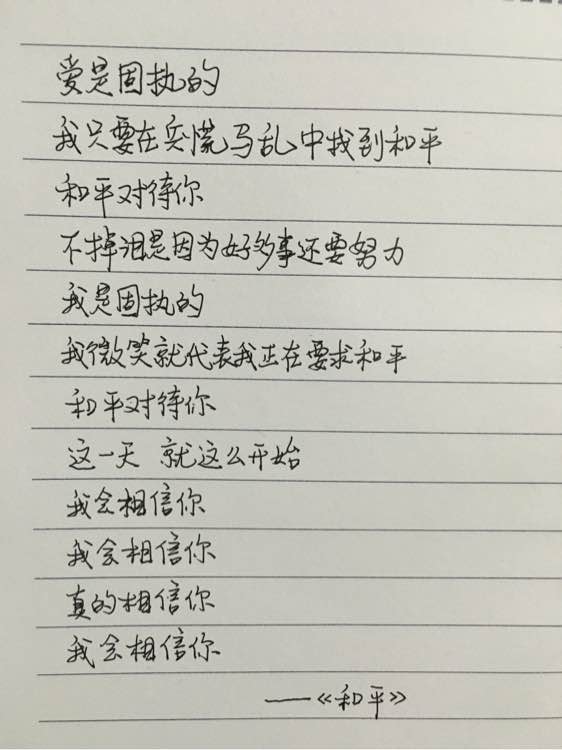 爱是固执的
我只要在兵慌马乱中找到和平
和平对待你
不掉泪是因为好多事还要努力
我是固执的
我微笑就代表我正在要求和平
和平对待你
这一天 就这么开始
我会相信你
我会相信你
真的相信你
我会相信你
——《和平》